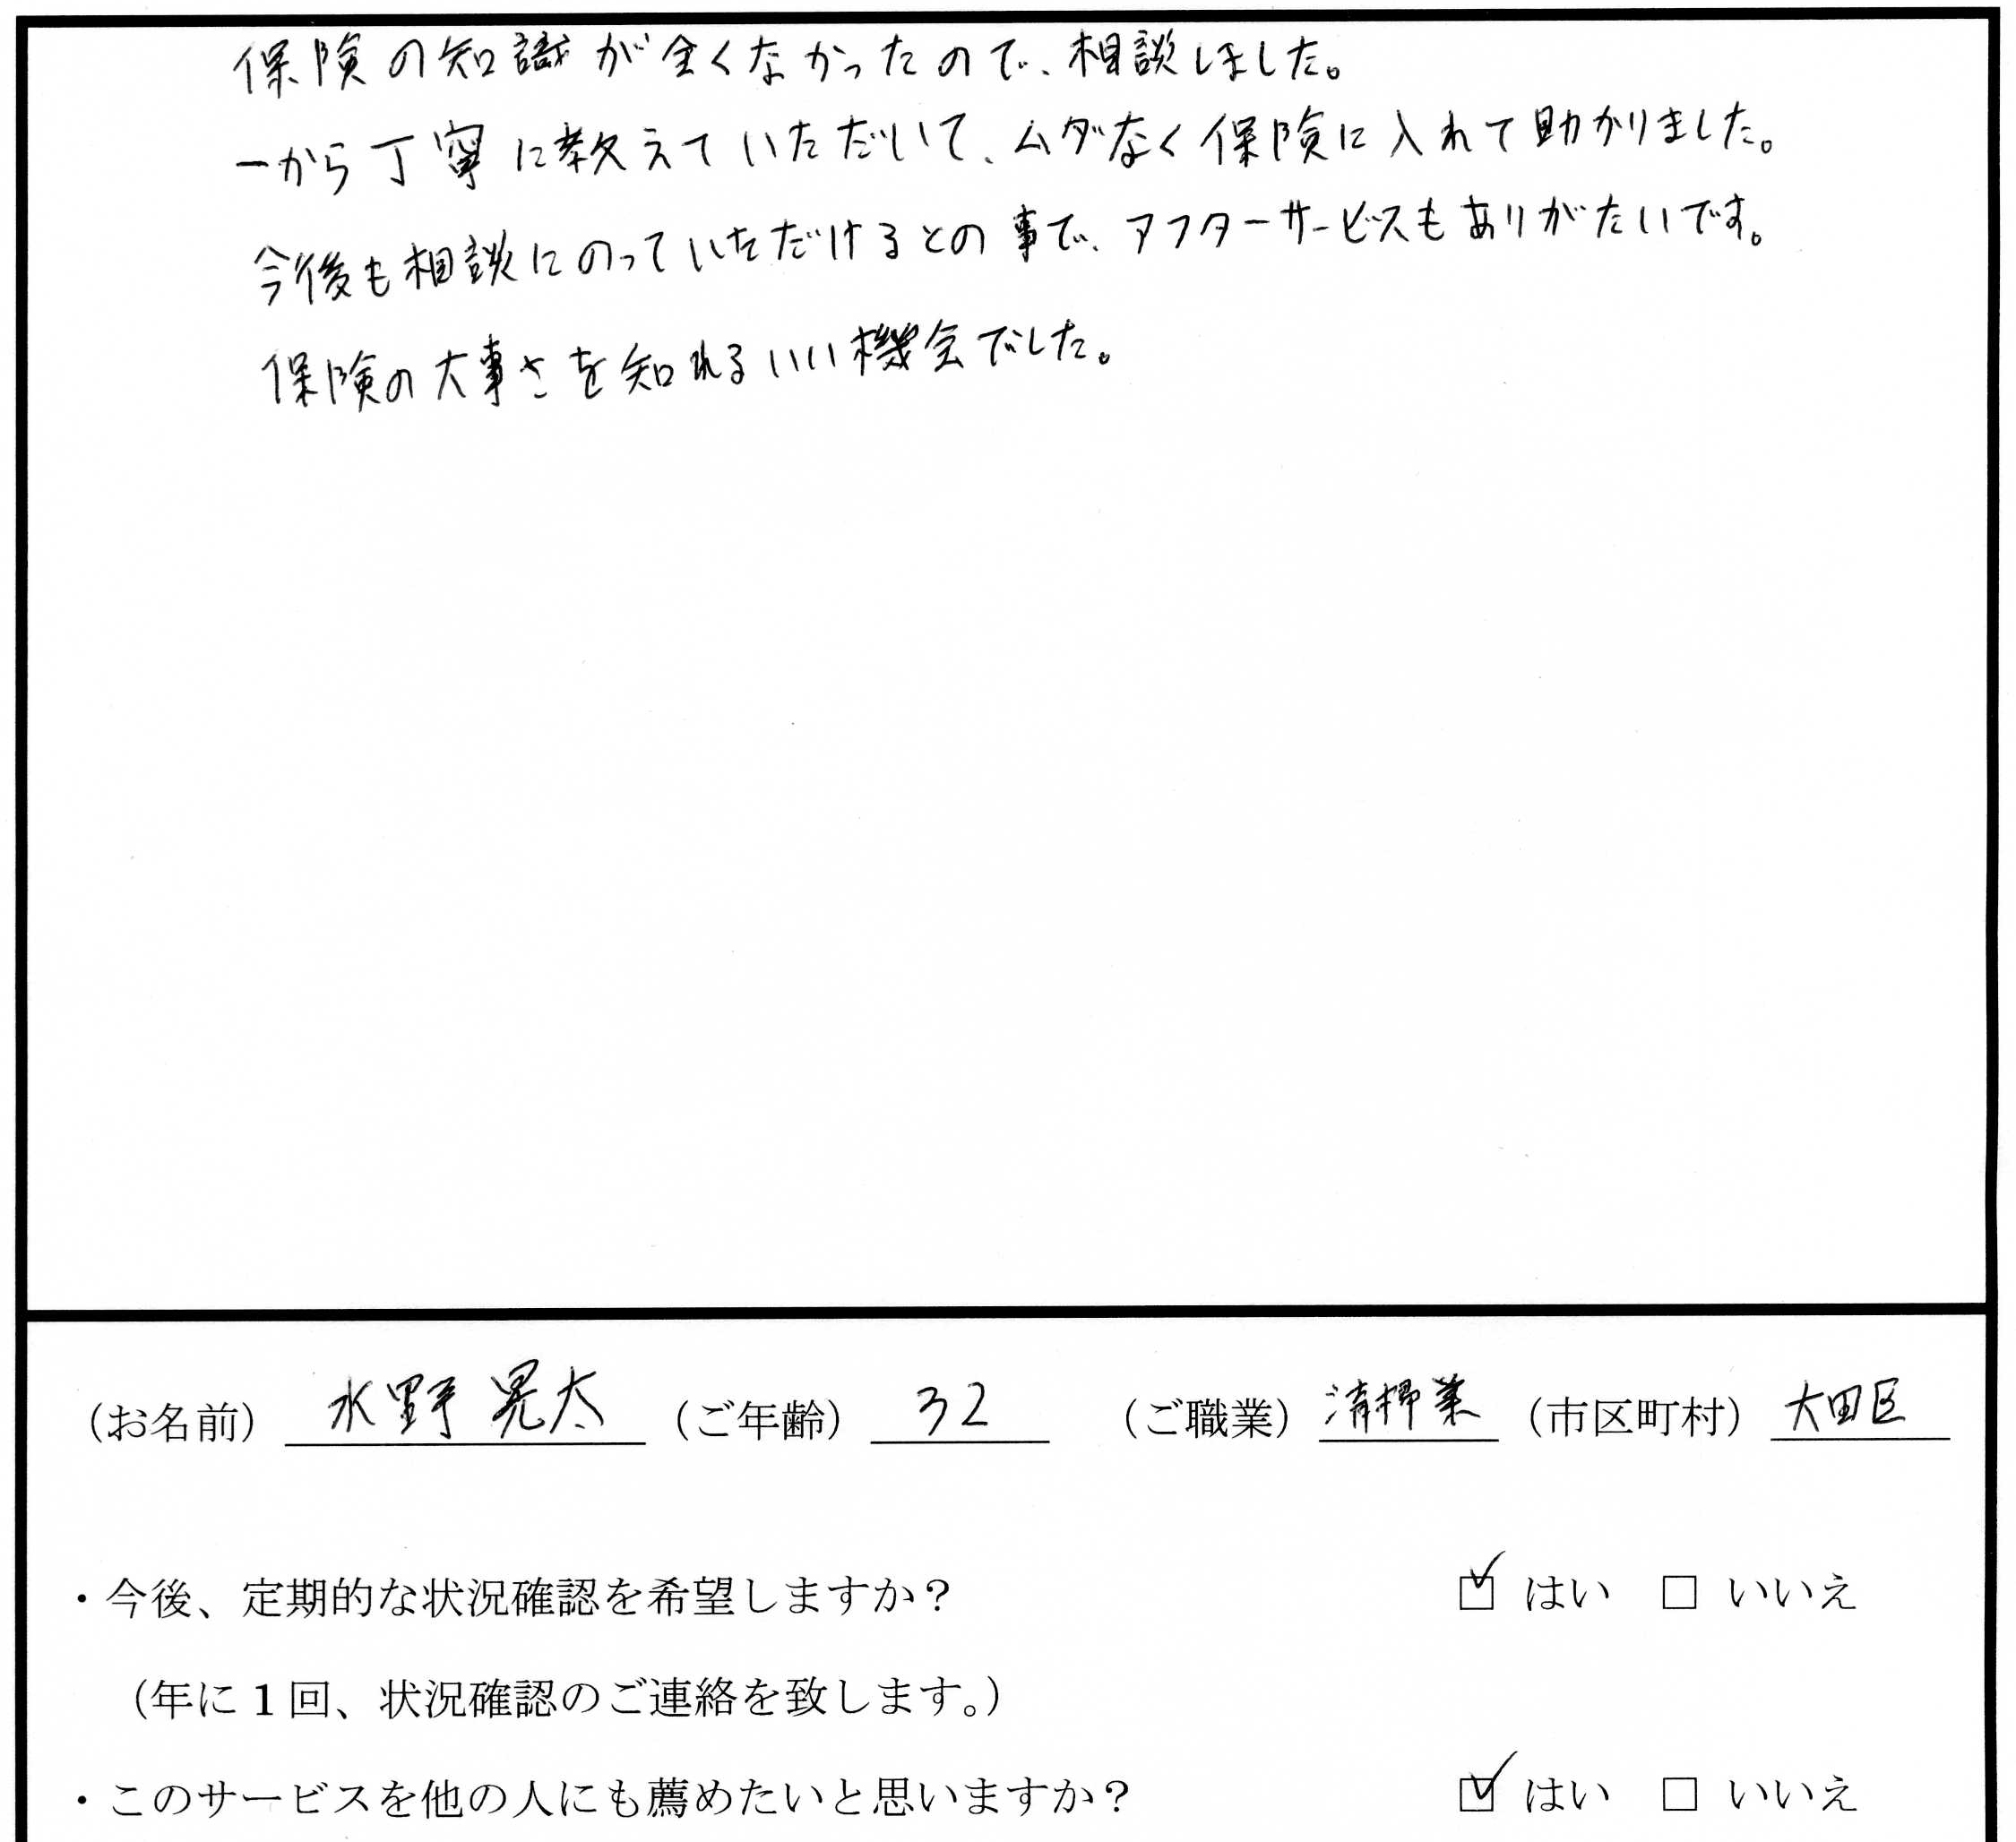 保険の知識が全くなかったので、相談しました。
一から丁寧に教えていただいて、ムダなく保険に入れて助かりました。
今後も相談にのっていただけるとの事で、アフターサービスもありがたいです。
保険の大事さを知れるいい機会でした。
（お名前） 水野 晃太 （ご年齢） 32 （ご職業） 清掃業 （市区町村） 大田区
・今後、定期的な状況確認を希望しますか？ ☑ はい □ いいえ
（年に１回、状況確認のご連絡を致します。）
・このサービスを他の人にも薦めたいと思いますか？ ☑ はい □ いいえ